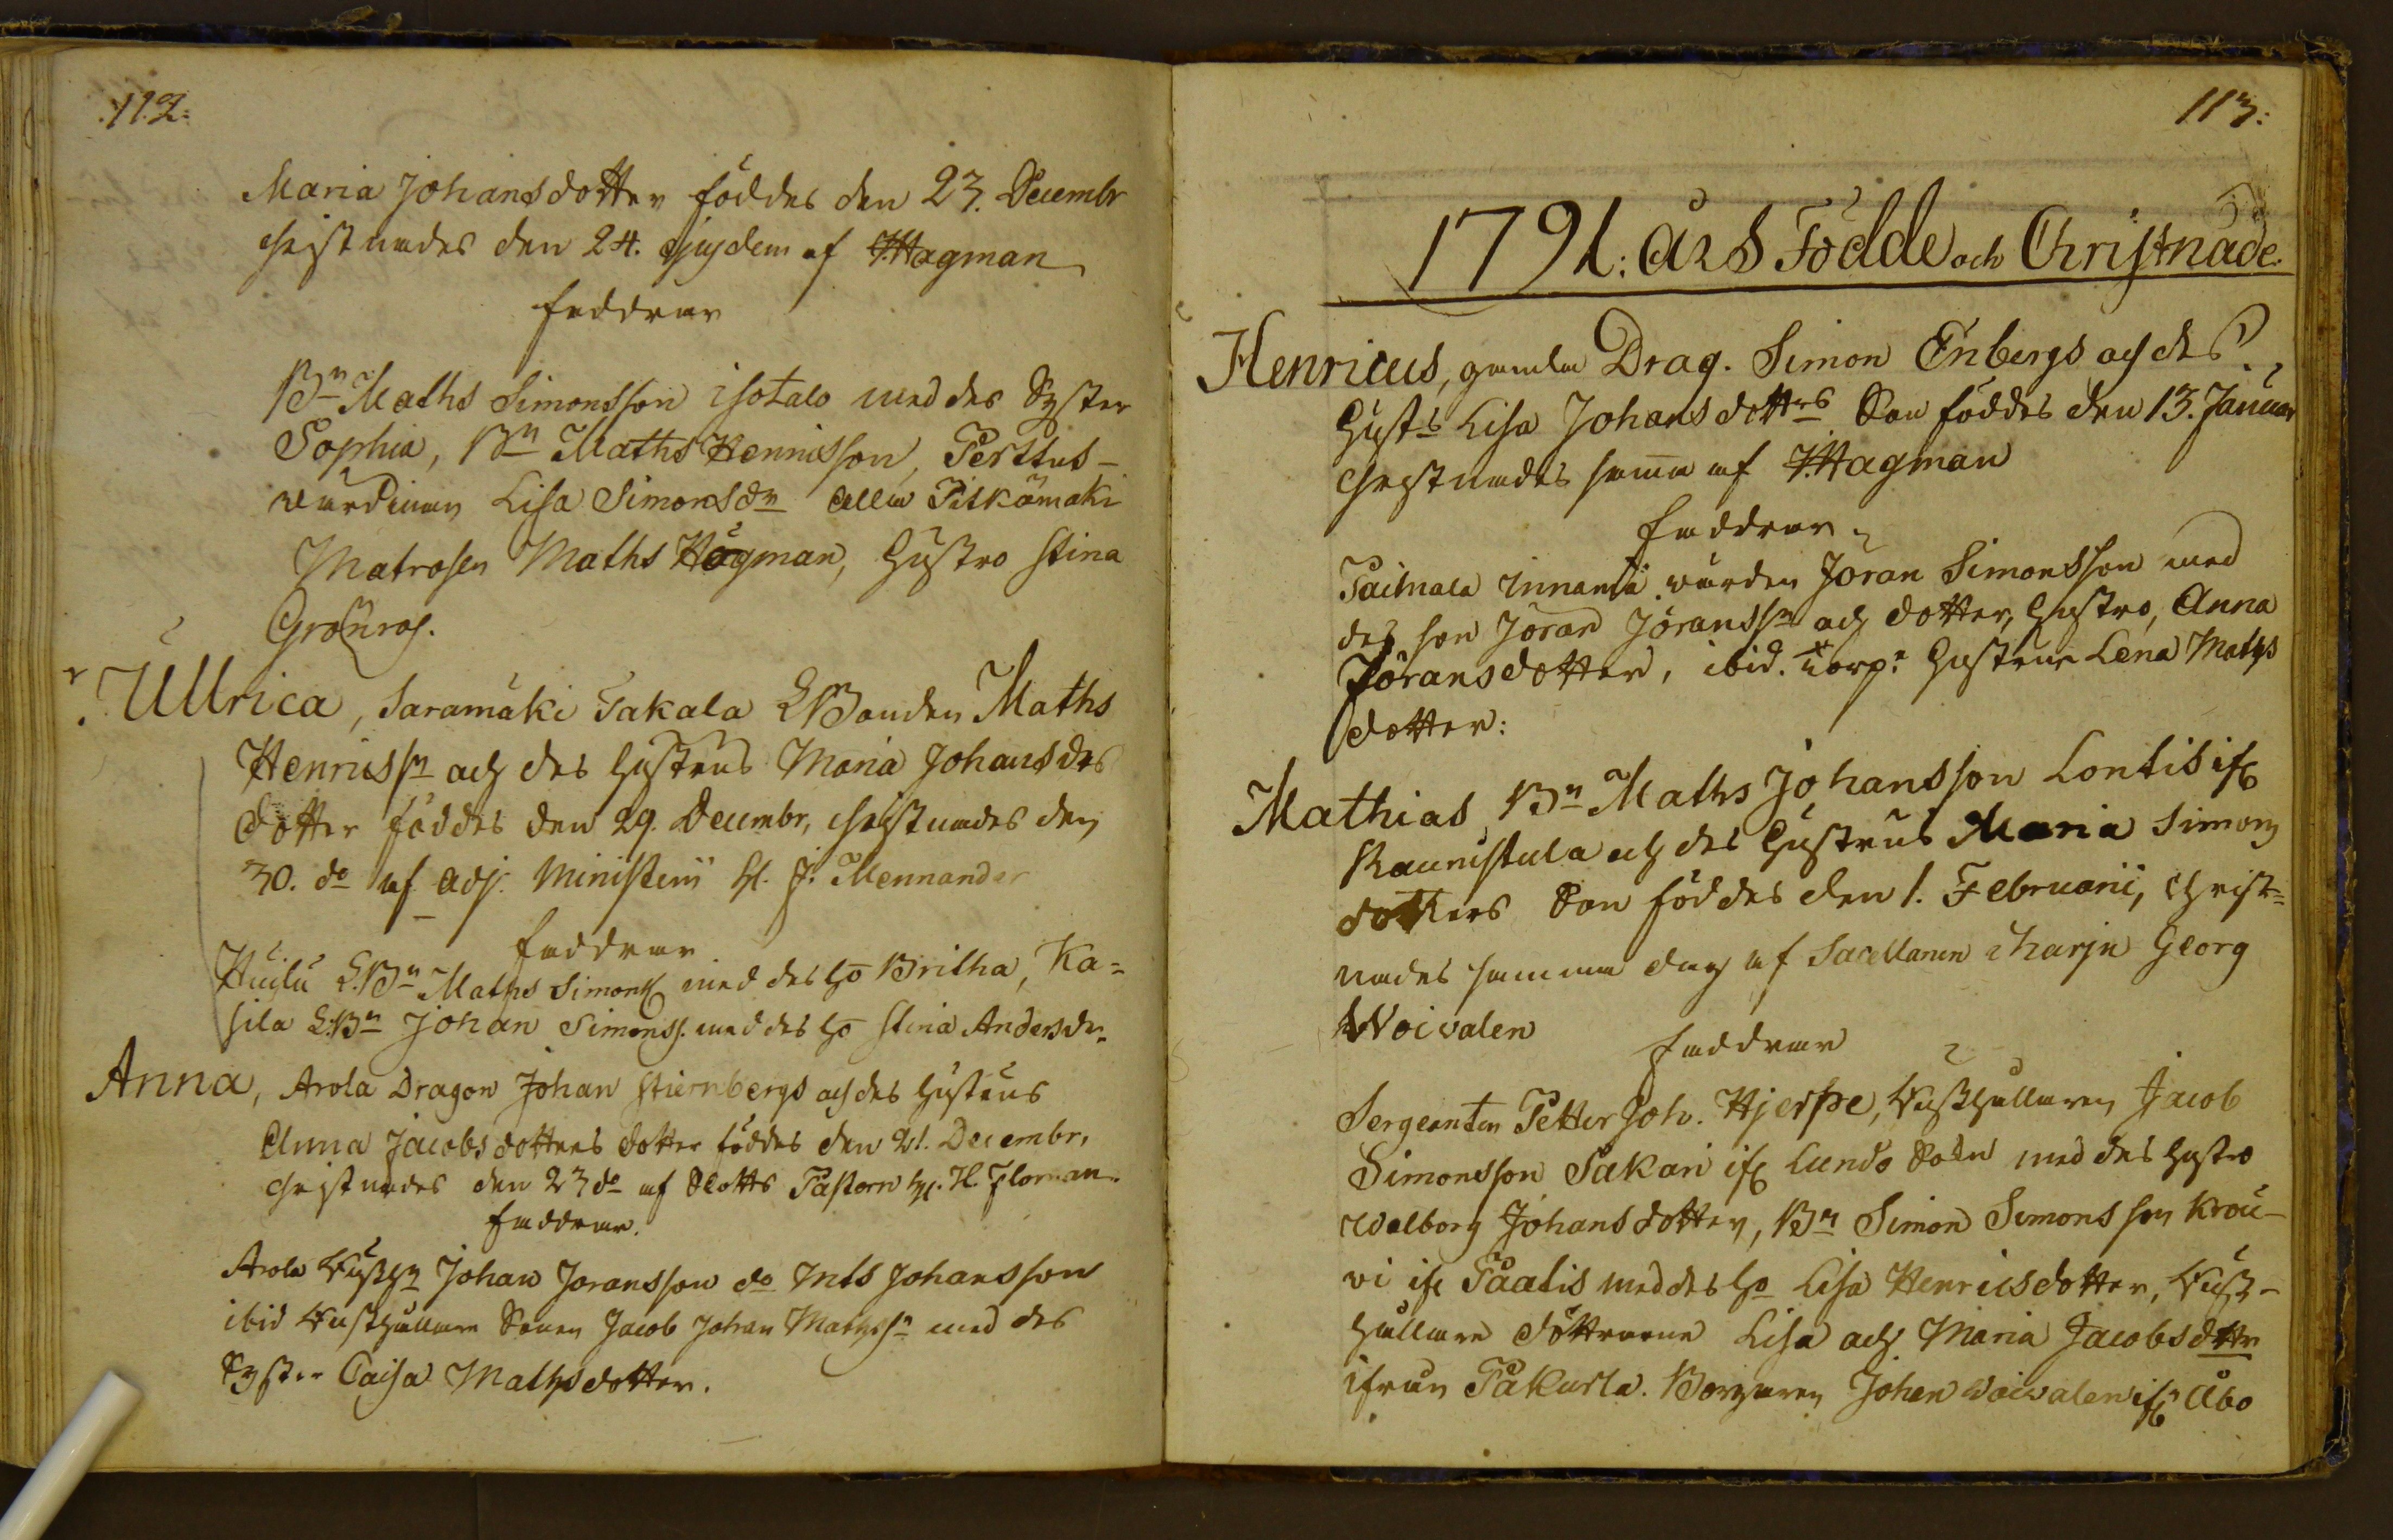 112.
Maria Johansdotter föddes den 23. Decembr
christnades den 24. ejusdem af J. Hagman
faddrar
Bn Maths Simonsson isotalo med des Syster
Sophia, Bn Maths Henricsson, Perttus-
värdinnan Lisa Simonsdr Alla Pitkämäki
Matrosen Maths Högman, Hustro Stina
Grönros.
Ullrica, Saramäki Takala LBonden Maths
Henricssn och des Hustrus Maria Johansdrs
dotter föddes den 29. Decembr, christnades den
30. do af Adj. Ministerii H. J. Mennander
faddrar
Huilu L.Bn Maths Simonss. med des Ho Britha, Ka-
sila L.Bn Johan Simonss. med des Ho Stina Andersdr.
Anna, Arola Dragon Johan Stiernbergs och des Hustrus
Anna Jacobsdotters dotter föddes den 21. Decembr,
christnades den 23 do af Slotts Pastorn H. H. Floman.
faddrar.
Arola Rusthn Johan Joransson do Mts Johansson
ibid Rusthållare Sonen Jacob Johan Mathssn med des
Syster Caisa Mathsdotter.
113:
1791: års Födde och Christnade.
Henricus, gamla Drag. Simon Enbergs och des
Hust.s Lisa Johansdotters Son föddes den 13. Januar
christnades samma af J. Hagman
faddrar
Pailnala Innanlä wärden Jöran Simonsson med
des son Jöran Jöranssn och dotter, Hustro, Anna
Jöransdotter, ibid. torp. Hustrun Lena Maths
dotter:
Mathias Bn Maths Johansson Lontis ifr
Raunistula och des Hustrus Maria Simons
dotters Son föddes den 1. Februarii, Christ-
nades samma dag af Sacellanen i Marje Georg
Woivalen
faddrar
Sergeanten Petter Joh. Hjerpe, Rusthållaren Jacob
Simonsson Sakari ifr Lundo Sokn med des Hustro
Walborg Johansdotter, Bn Simon Simonsson Krou-
vi ifr Paatis med des Ho Lisa Henricsdotter, Rust-
hållare döttrarne Lisa och Maria Jacobsdttr
ifrån Pakurla. Borgaren Johan Woivalen ifr Åbo